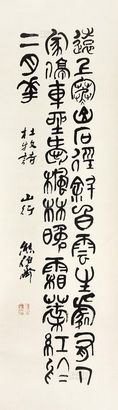 遠上寒山石徑斜白雲生處有人
家停車坐愛楓林晚霜葉紅於
二月華
杜牧詩 山行 熊伯齊